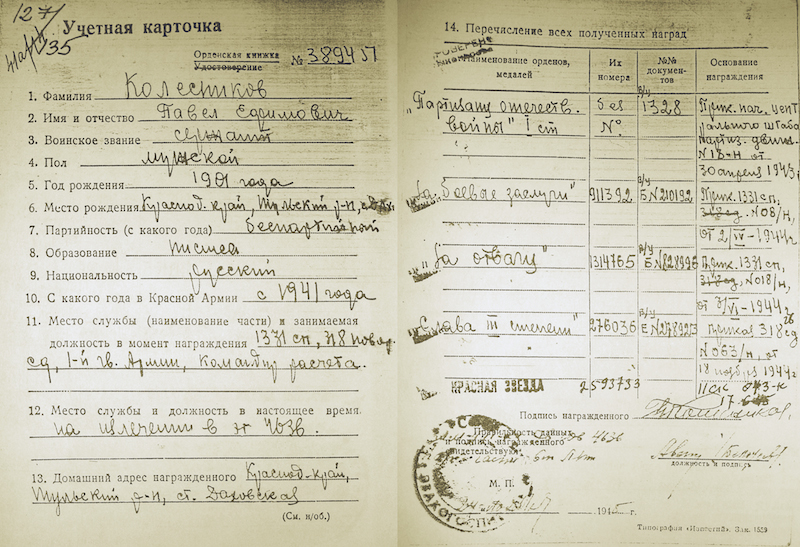 127
35
Учетная карточка
Орденская книжка
Удостоверение
№ 389451
1. Фамилия Колесников
2. Имя и отчество Павел Ефимович
3. Воинское звание сержант
4. Пол мужской
5. Год рождения 1901 года
6. Место рождения Краснод. край, Тульский р-н,
7. Партийность (с какого года) беспартийный
8. Образование
9. Национальность русский
10. С какого года в Красной Армии с 1941 года
11. Место службы (наименование части) и занимаемая
должность в момент награждения 1331 сп, 318
сд, 1-й гв. Армии, командир расчета.
12. Место службы и должность в настоящее время.
на излечении в эг 4636
13. Домашний адрес награжденного Краснод. край,
Тульский р-н, ст. Даховская
(См. н/об.)
14. Перечисление всех полученных наград
Наименование орденов, медалей
Их номера
№№ документов
Основание награждения
„Партизану отечеств. войны" I ст
без №
в/у 1328
Прик. нач. центрального штаба партиз. движ. №18-н от 30 апреля 1943г
„За боевые заслуги"
911392
в/у Б №210192
Прик. 1331 сп, №08/н, от 2/VI-1944г
„За отвагу"
1314765
в/у Б №
Прик. 1331 сп, №018/н, от /VI-1944г
„Слава III степени"
276036
в/у
приказ 318 сд №063/н, от 18 ноября 1944г
КРАСНАЯ ЗВЕЗДА
2593733
Подпись награжденного
Правильность данных
и подпись награжденного
свидетельствую
должность и подпись
М. П.
1945 г.
Типография «Известий». Зак. 1559